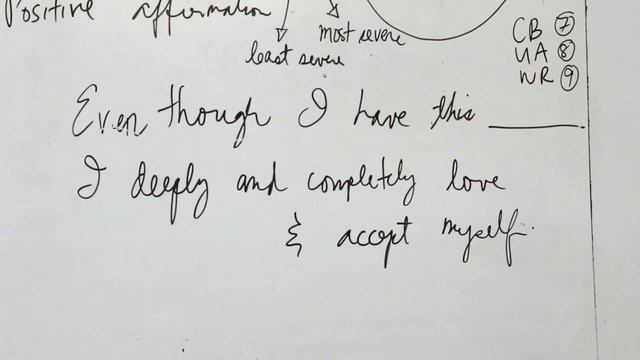 Positive affirmation
least severe
most severe
CB 7
UA 8
WR 9
Even though I have this ______
I deeply and completely love
& accept myself.